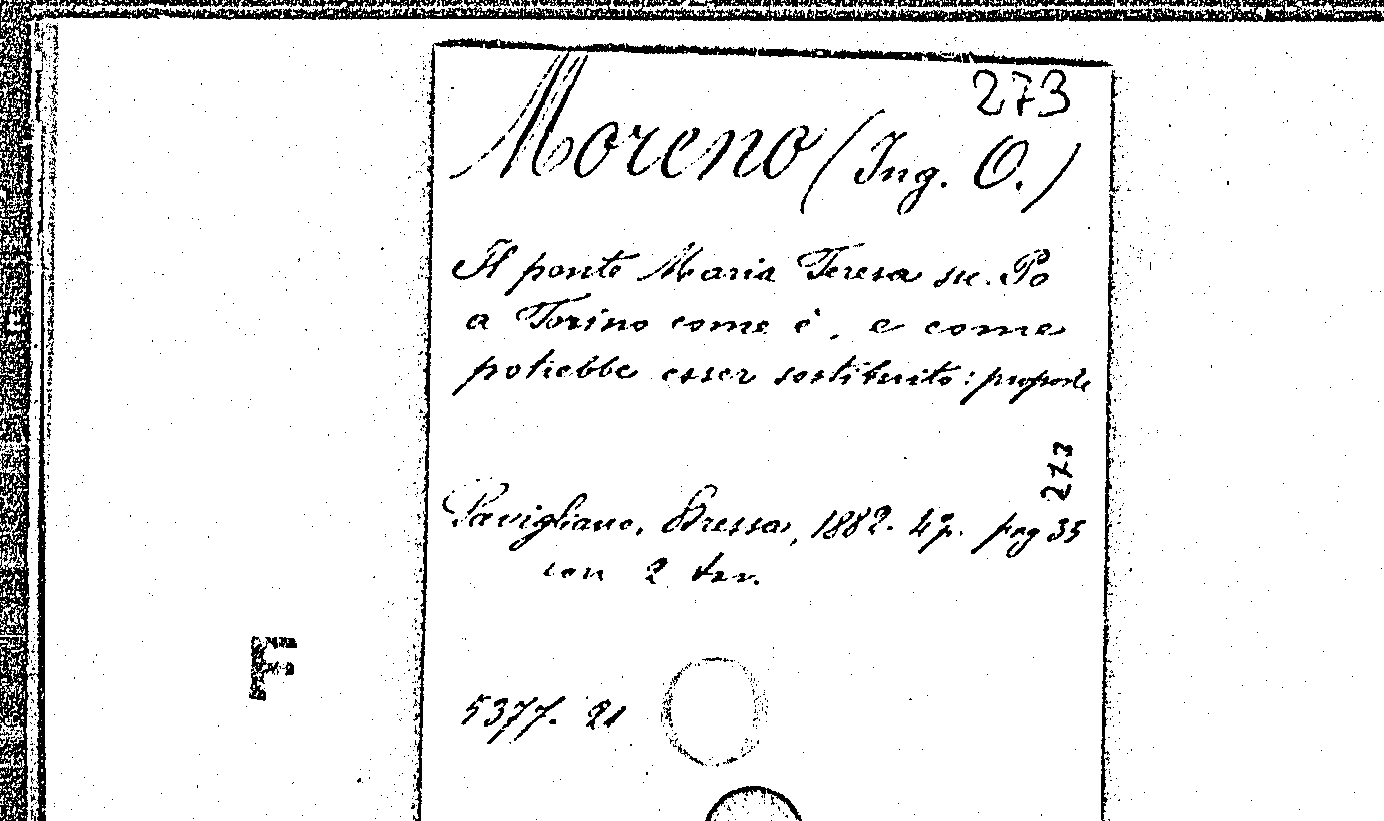 273
Moreno (Ing. O.)
Il ponte Maria Teresa su Po
a Torino come è, e come
potrebbe esser sostituito: proposte
273
Savigliano, Bressa, 1882. 4°. pag 35
con 2 tav.
5377. 21
F